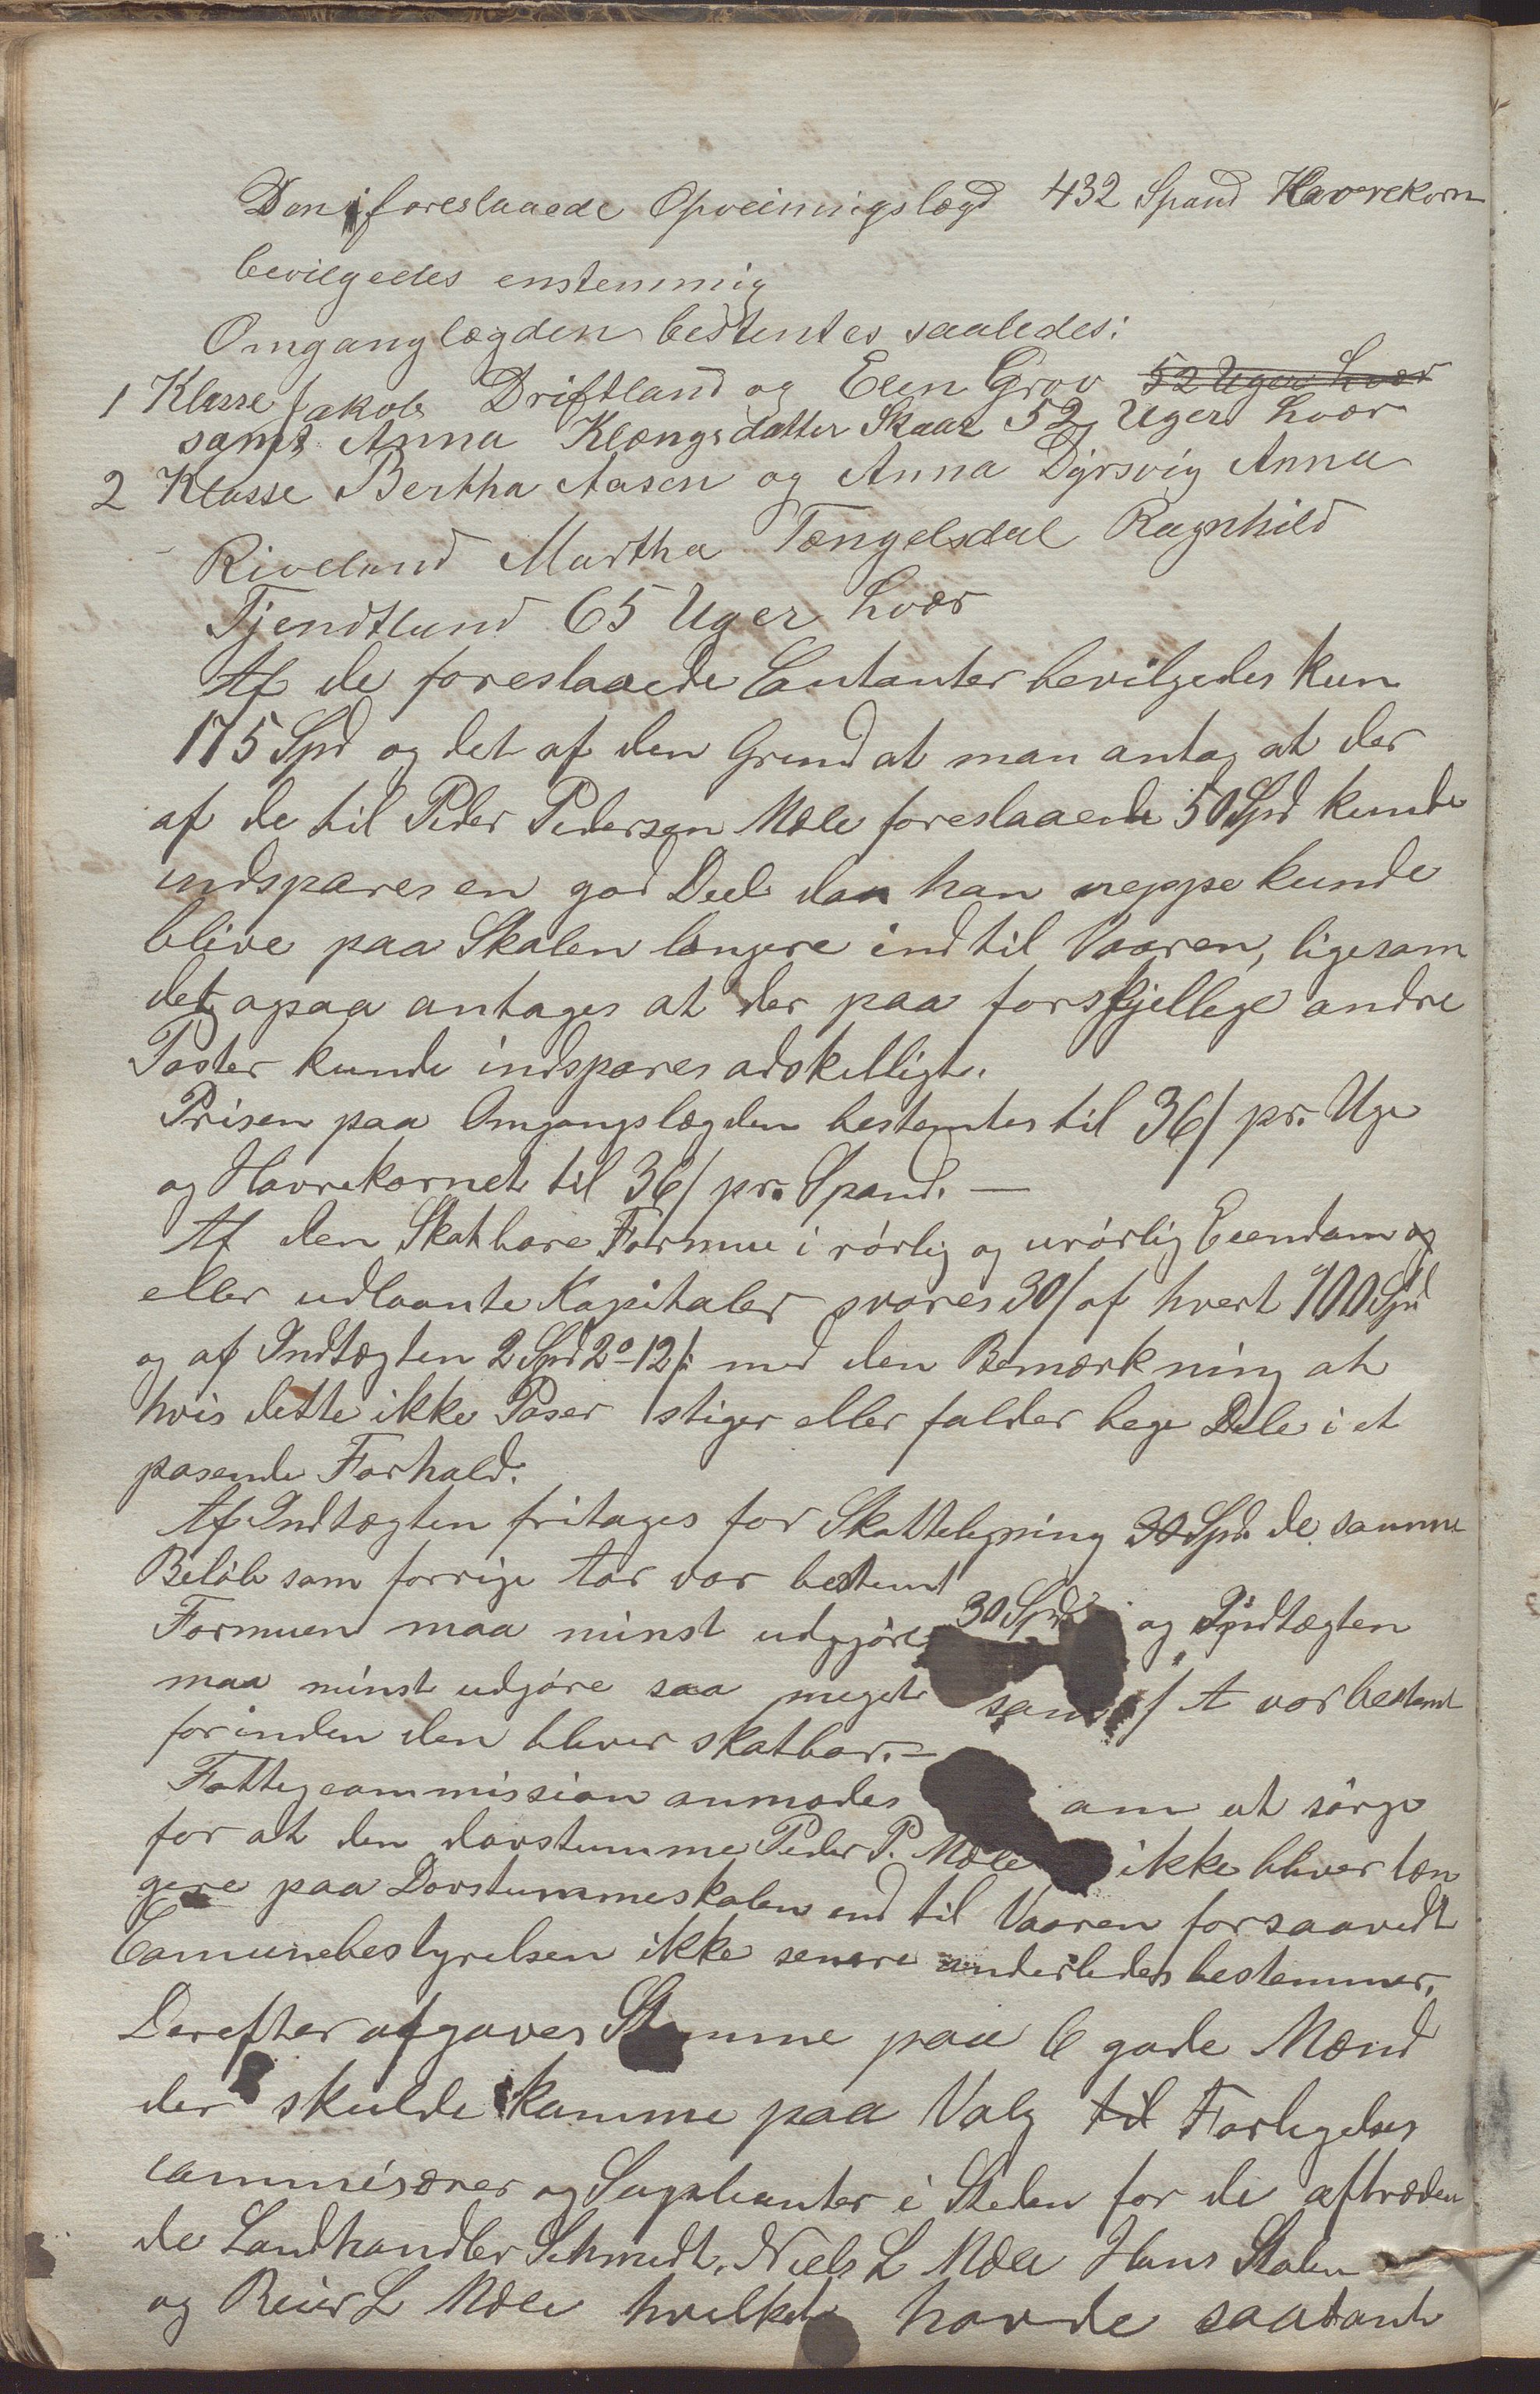 Den foreslaaede Opveiningslægd 432 Spand Havrekorn
bevilgedes enstemmig
Omganglægden bestemtes saaledes:
1 Klasse Jakob Driftland og Elen Grov 52 Uger hver
samt Anna Klængsdatter Skaar 52 Uger hver
2 Klasse Bertha Aasen og Anna Dyrsvig Anna
Riveland Martha Tængelsdal Ragnhild
Tjendtland 65 Uger hver
Af de foreslaaede Contanter bevilgedes kun
175 Spd og det af den Grund at man antog at der
af de til Peder Pedersen Mæle foreslaaede 50 Spd kunde
indspares en god Deel da han neppe kunde
blive paa Skolen længere indtil Vaaren, ligesom
det ogsaa antages at der paa forskjellige andre
Poster kunde indspares adskilligt.
Prisen paa Omgangslægden bestemtes til 36/ pr. Uge
og Havrekornet til 36/ pr. Spand. —
Af den Skatbare Formue i rørlig og urørlig Eiendom og
eller udlaante Kapitaler svares 30/ af hvert 100 Spd
og af Indtægten 2 Spd 2º 12/ med den Bemærkning at
hvis dette ikke Paser stiger eller falder bege Dele i et
pasende Forhold.
Af Indtægten fritages for Skatteligning 30 Spd. de samme
Beløb som forrige Aar var bestemt
Formuen maa minst udgjøre 30 Spd og Indtægten
maa minst udgjøre saa meget som f A var bestemt
forinden den bliver skatbar. —
Fattigcommission anmodes om at sørge
for at den døvstumme Peder P. Mæle ikke bliver læn
gere paa Døvstummeskolen end til Vaaren forsaavidt
Comunebestyrelsen ikke senere anderledes bestemmer.
Derefter afgaves Stemme paa 6 gode Mænd
der skulde komme paa Valg til Forligelses
commisærer og Suplianter i Steden for de aftræden
de Landhandler Schmidt, Niels L Mæle Hans Skolen
og Reier L Mæle hvilket havde saadant